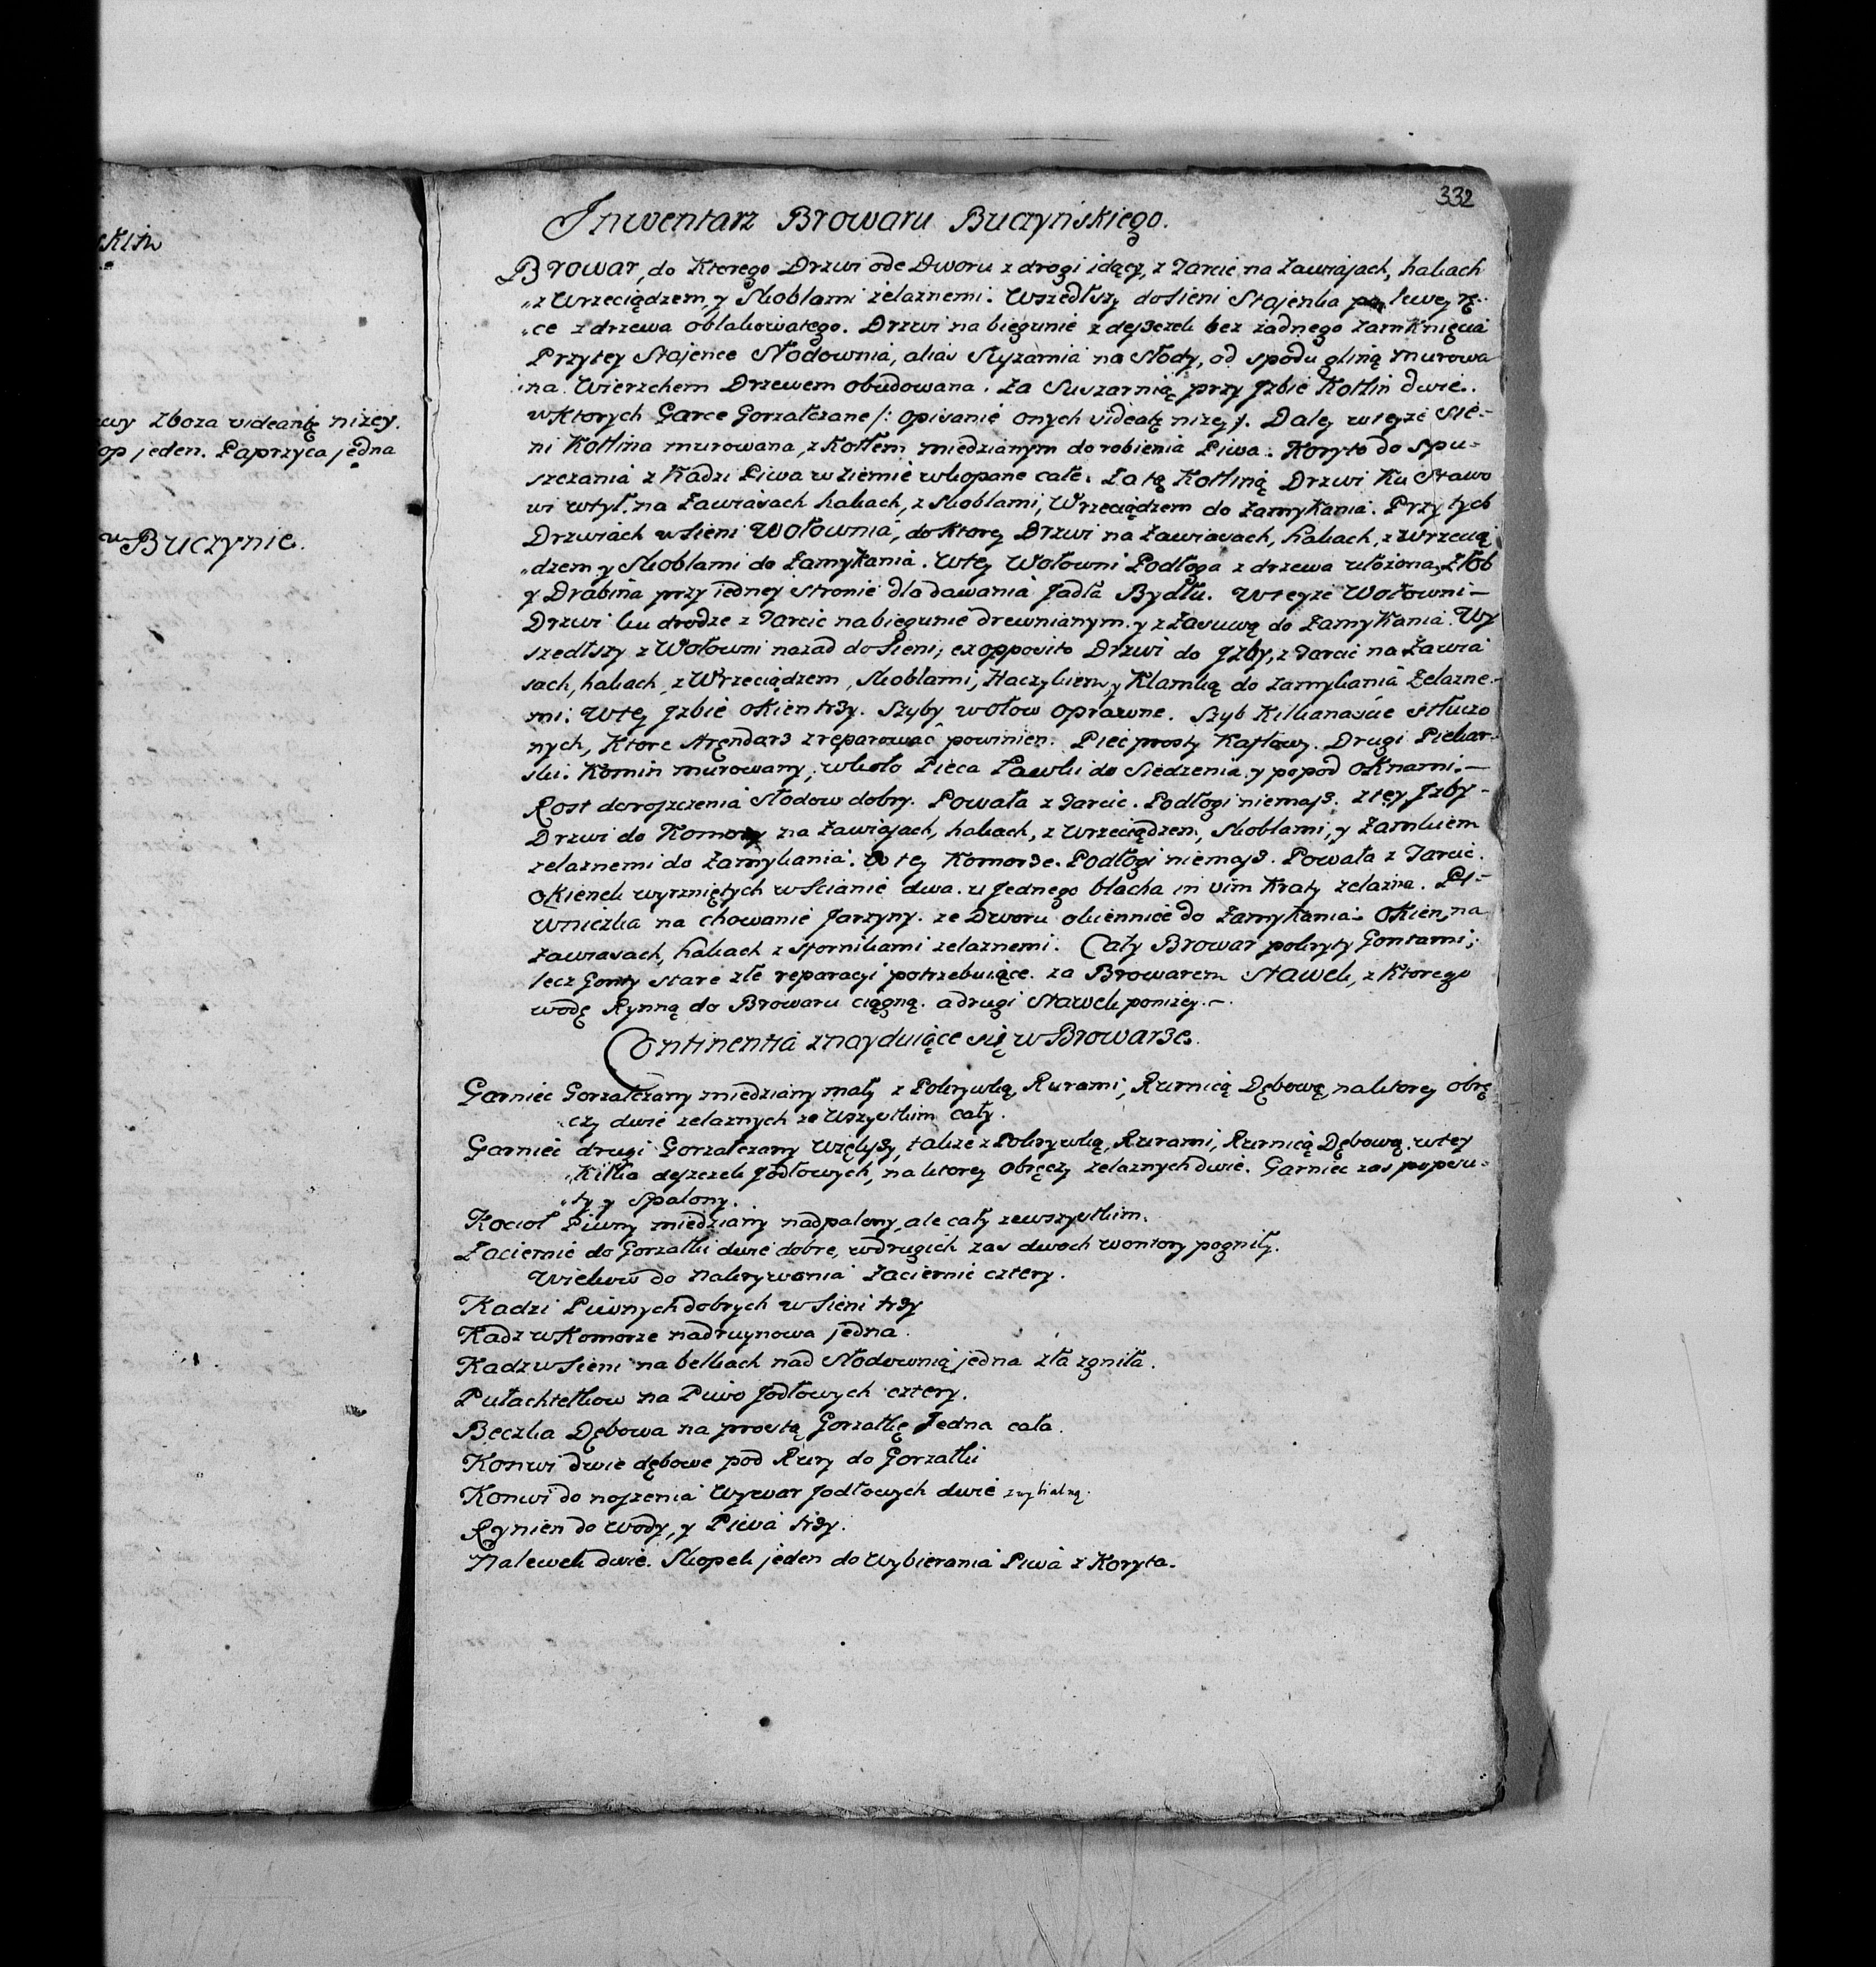 skim
wy Zboza videantę nizey.
op jeden. Paprzyca jedna
w Buczynie.
332
Inwentarz Browaru Buczyńskiego.
Browar, do Ktorego Drzwi ode Dworu z drogi idący, z Tarcic na Zawiasach, hakach
„z Wrzeciądzem, y Skoblami zelaznemi. Wszedłszy do Sieni Stajenka po lewey rę-
„ce z drzewa obłakowatego. Drzwi na biegunie z deszczek bez zadnego Zamknięcia
Przy tey Stajence Słodownia, alias Suszarnia na Słody, od spodu gliną murowa
„na Wierzchem Drzewem obudowana. Za Suszarnią przy Jzbie Kotlin dwie.
w Ktorych Garce Gorzałczane /: opisanie onych videatę nizey /. Daley w teyze Sie-
ni Kotlina murowana, z Kotłem miedzianym do robienia Piwa. Koryto do spu-
szczania z Kadzi Piwa w Ziemie wkopane całe. Za tą Kotliną Drzwi Ku Stawo
wi w tył na Zawiasach hakach, z Skoblami, Wrzeciądzem do Zamykania. Przy tych
Drzwiach w Sieni Wołownia, do Ktorey Drzwi na Zawiasach, hakach, z Wrzecią
„dzem y Skoblami do Zamykania. W tey Wołowni Podłoga z drzewa ułożona, Złob
y Drabina przy iedney stronie dla dawania Jadła Bydłu. W teyze Wołowni
Drzwi ku drodze z Tarcic na biegunie drewnianym y z Zasuwą do Zamykania. Wy
szedłszy z Wołowni nazad do Sieni, ex opposito Drzwi do Jzby, z Tarcic na Zawia
sach, hakach, z Wrzeciądzem, Skoblami, Haczykiem y Klamką do zamykania Zelazne-
mi. W tey Jzbie okien trzy. Szyby w ołow oprawne. Szyb Kilkanascie stłuczo
nych, Ktore Arędarz zreparować powinien. Piec prosty Kaflowy. Drugi Piekar-
ski. Komin murowany, w koło Pieca Ławki do Siedzenia y popod oknami.
Rost do roszczenia Słodow dobry. Powała z Tarcic. Podłogi niemasz. z tey Jzby
Drzwi do Komory na Zawiasach, hakach, z Wrzeciądzem, Skoblami, y Zamkiem
zelaznemi do Zamykania. W tey Komorze Podłogi niemasz. Powała z Tarcic.
okienek wyrzniętych w Scianie dwa. u Jednego blacha in vim Kraty zelazna. Pi-
wniczka na chowanie Jarzyny. ze Dworu okiennice do Zamykania Okien, na
Zawiasach, hakach z Stornikami zelaznemi. Cały Browar pokryty Gontami,
lecz Gonty stare złe reparacyi potrzebuiące. za Browarem Stawek, z Ktorego
wodę Rynną do Browaru ciągną. a drugi Stawek poniżey.
Continentia znayduiące się w Browarze.
Garniec Gorzałczany miedziany mały z Pokrywką, Rurami, Rurnicą Dębową, na ktorey obrę
czy dwie zelaznych ze Wszystkim cały.
Garniec drugi Gorzałczany Większy, takze z Pokrywką, Rurami, Rurnicą Dębową. w tey
„Kilka deszczek Jodłowych, na ktorey obręczy zelaznych dwie. Garniec zas popsu-
„ty y Spalony.
Kocioł Piwny miedziany nadpalony, ale cały ze wszystkim.
Zaciernie do Gorzałki dwie dobre, w drugich zas dwoch wontory pogniły.
Wiekow do nakrywania Zaciernic cztery.
Kadzi Piwnych dobrych w Sieni trzy
Kadz w Komorze nadruynowa jedna.
Kadz w Sieni na belkach nad Słodownią jedna zła zgniła.
Pułachtelkow na Piwo Jodłowych cztery.
Beczka Dębowa na prostą Gorzałkę Jedna cała.
Konwi dwie dębowe pod Rury do Gorzałki
Konwi do noszenia Wywar Jodłowych dwie
Rynien do wody, y Piwa trzy.
Nalewek dwie. Skopek jeden do Wybierania Piwa z Koryta.